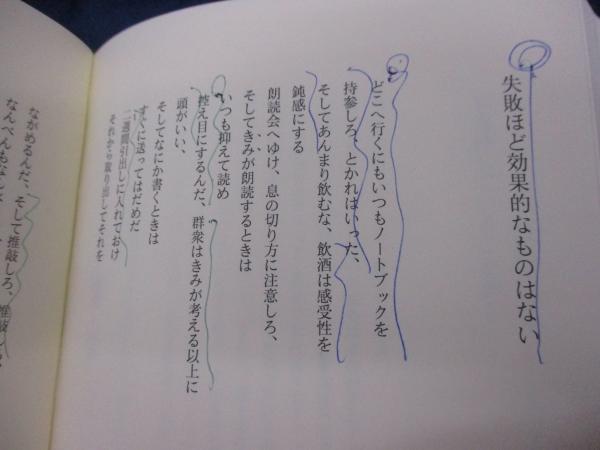 失敗ほど効果的なものはない
どこへ行くにもいつもノートブックを
持参しろ、とかれはいった、
そしてあんまり飲むな、飲酒は感受性を
鈍感にする
朗読会へゆけ、息の切り方に注意しろ、
そしてきみが朗読するときは
いつも抑えて読め
控え目にするんだ、群衆はきみが考える以上に
頭がいい、
そしてなにか書くときは
すぐに送ってはだめだ
二週間引出しに入れておけ
それから取り出してそれを
ながめるんだ、そして推敲しろ、推敲しろ、
なんべんも